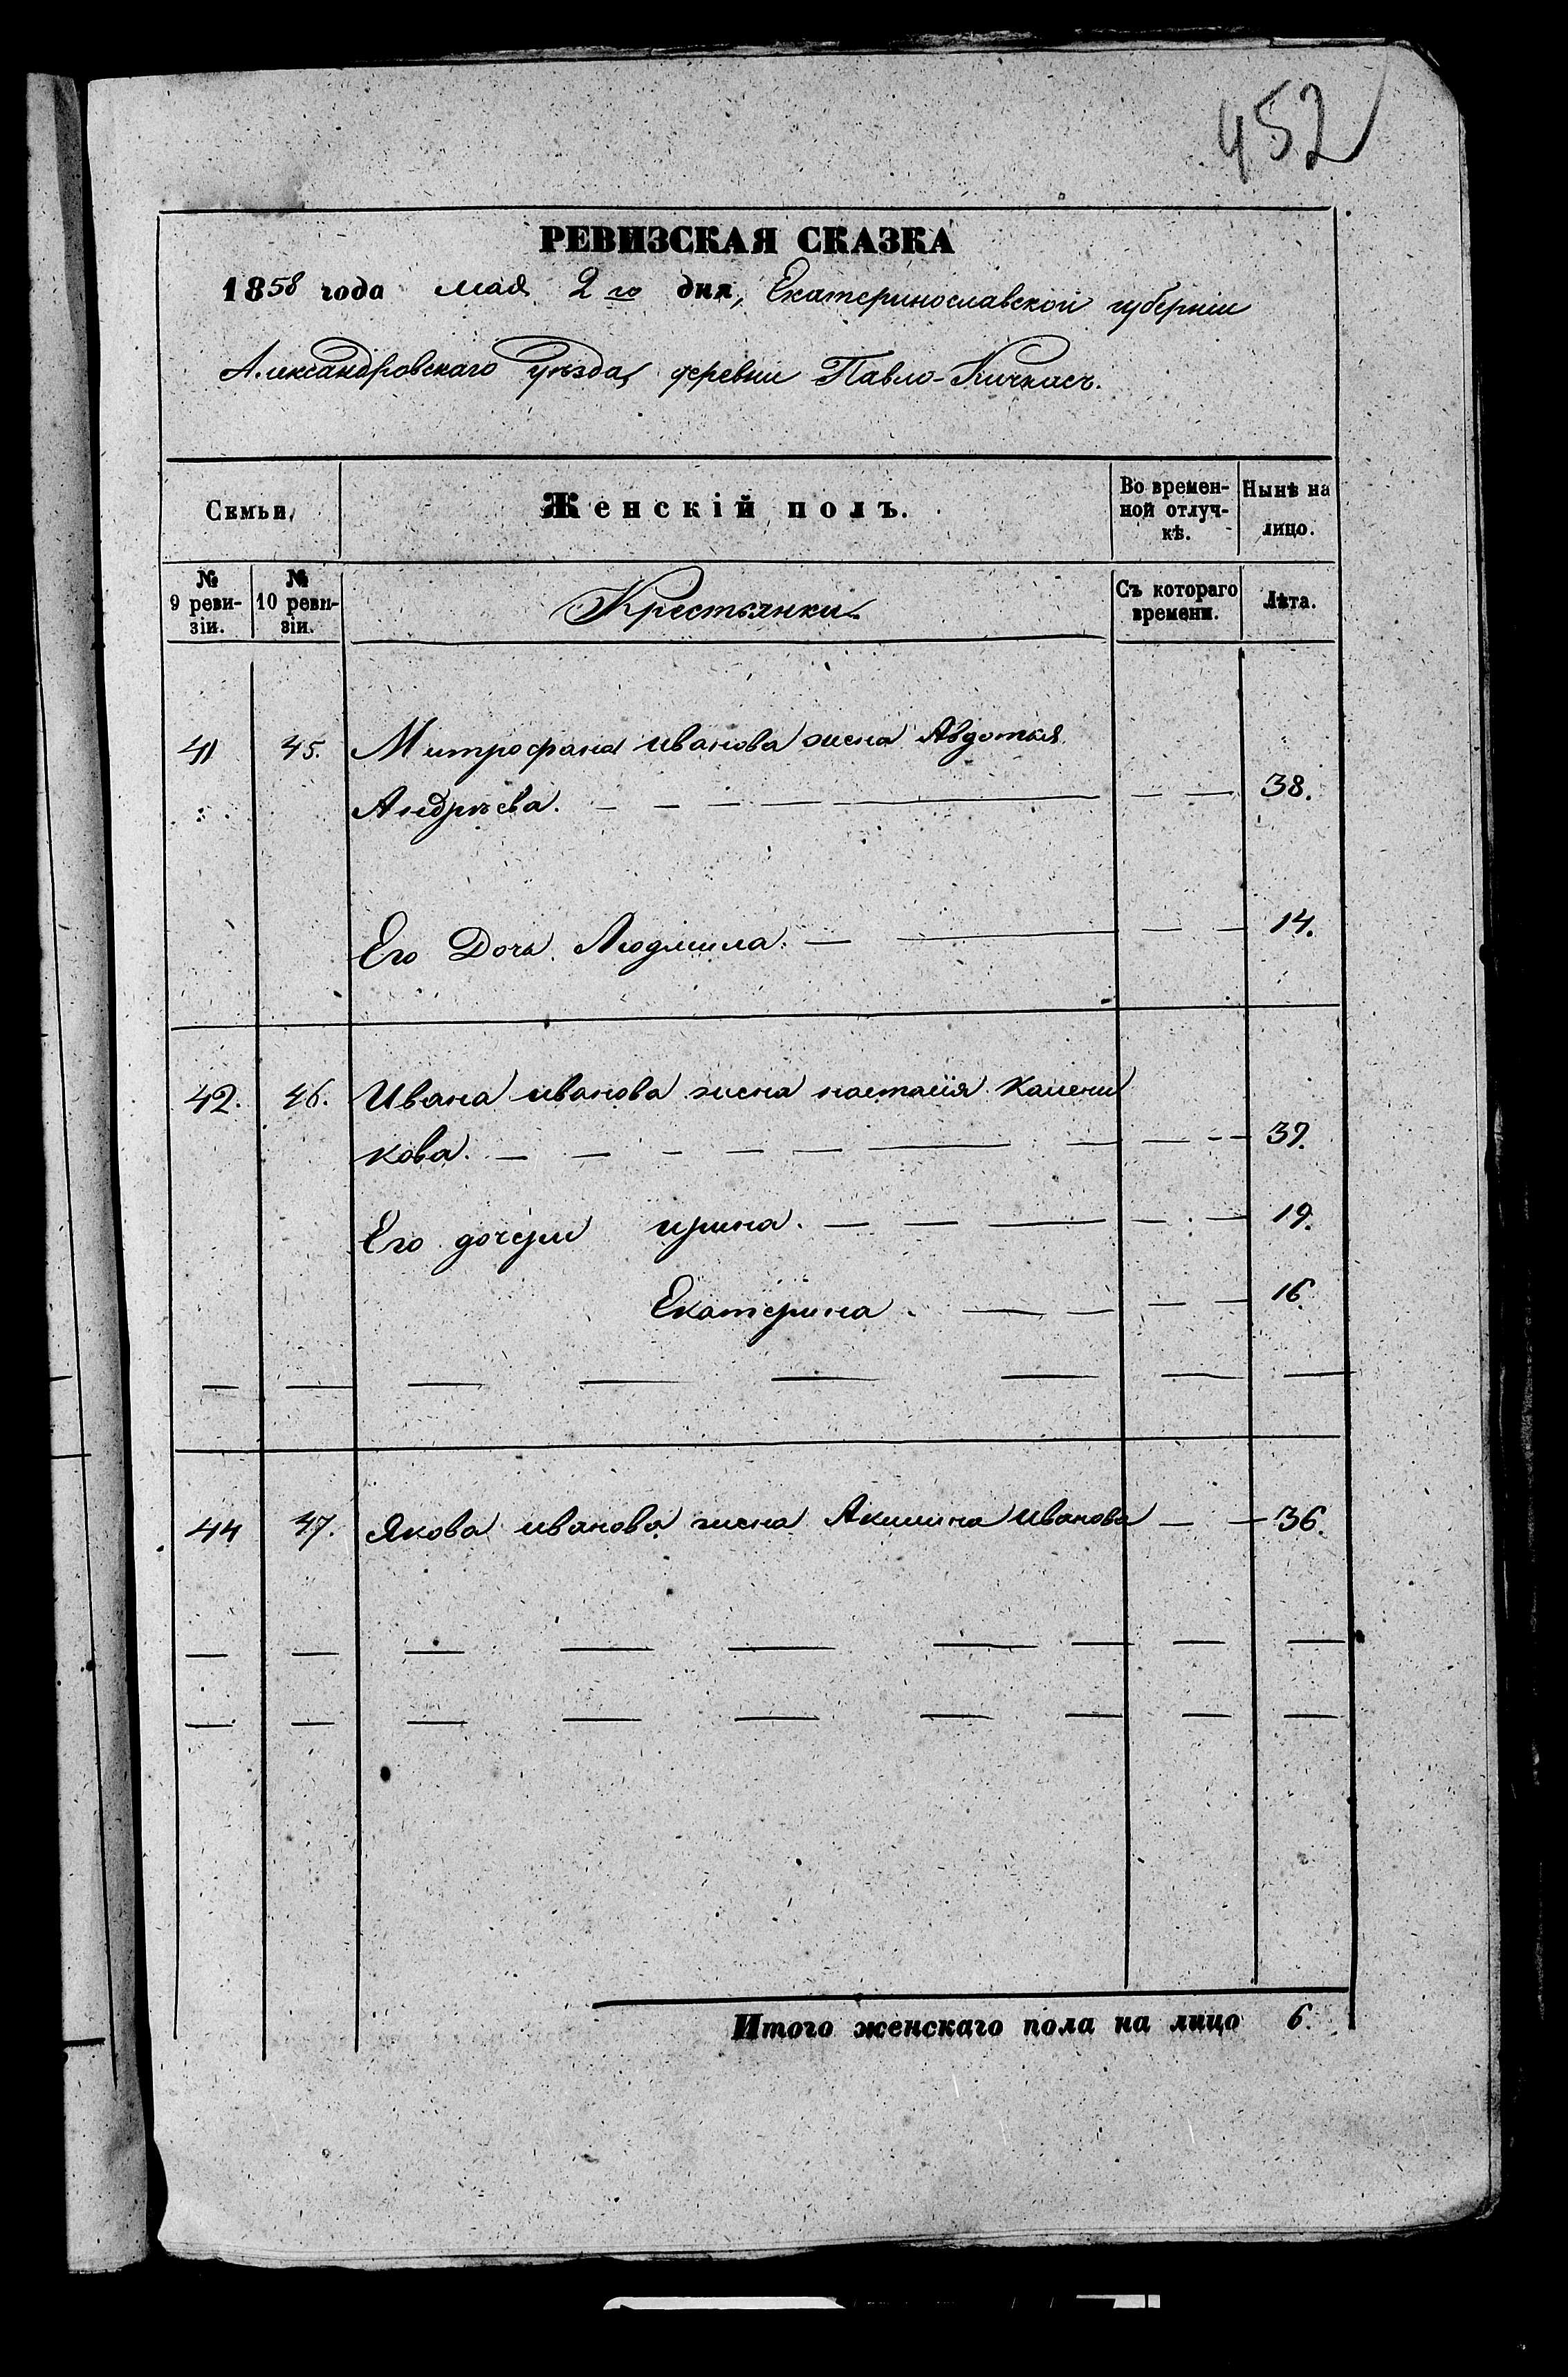 452
РЕВИЗСКАЯ СКАЗКА
1858 года мая 2го дня, Екатеринославской губерніи
Александровскаго Уѣзда, деревни Павло-Кичкасъ.
Семьи, Женскій полъ. Во времен- Нынѣ на
ной отлуч- лицо.
кѣ.
№ № Крестьянки Съ котораго Лѣта.
9 реви- 10 реви- времени.
зіи. зіи.
41 45. Митрофана иванова жена Авдотья
Андрѣева. 38.
Его Дочь Людмила. 14.
42. 46. Ивана иванова жена настасія
кова. 39.
Его дочери ирина. 19.
Екатерина 16.
44 47. Якова иванова жена Акилина Иванова 36.
Итого женскаго пола на лицо 6.